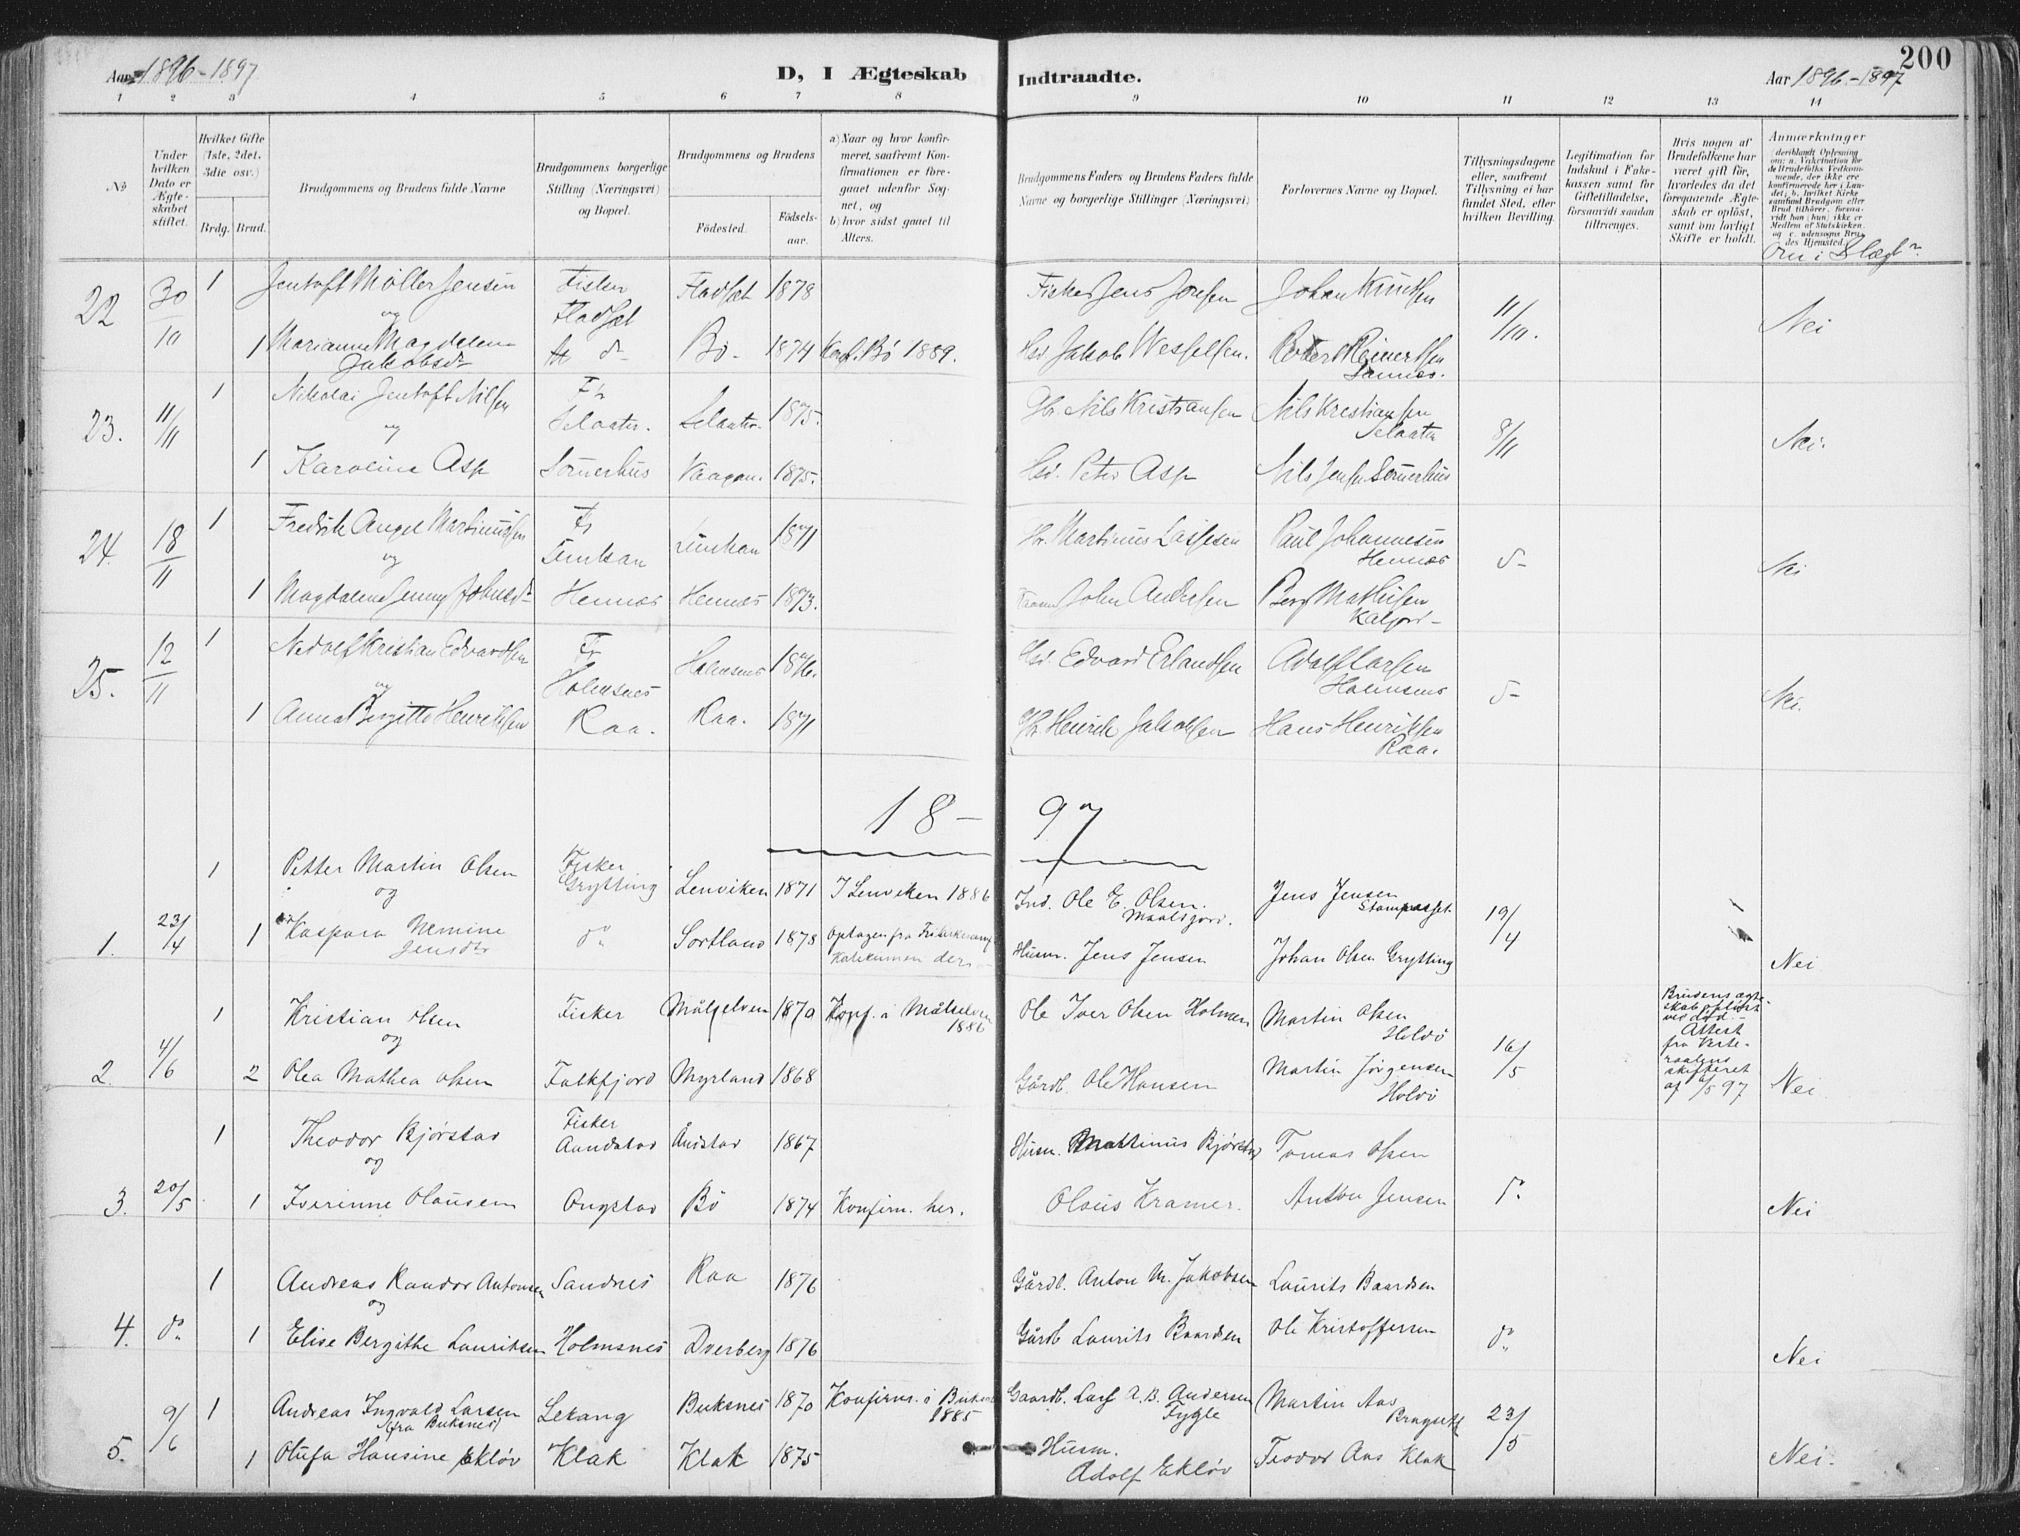 Aar 1896-1897
D, I Ægteskab Indtraadte.
Aar 1896-1897
200
1 2 3 4 5 6 7 8 9 10 11 12 13 14
No
Under hvilken Dato er Ægteskabet stiftet.
Hvilket Gifte (1ste, 2det, 3die osv.)
Brdg. Brud.
Brudgommens og Brudens fulde Navne
Brudgommens borgerlige Stilling (Næringsvei) og Bopæl.
Brudgommens og Brudens
Fødested. Fødselsaar.
a) Naar og hvor konfirmeret, saafremt Konfirmationen er foregaaet udenfor Sognet, og
b) hvor sidst gaaet til Alters.
Brudgommens Faders og Brudens Faders fulde Navne og borgerlige Stillinger (Næringsvei)
Forlovernes Navne og Bopæl.
Tillysningsdagene eller, saafremt Tillysning ei har fundet Sted, efter hvilken Bevilling.
Legitimation for Indskud i Fakekassen samt for Giftetilladelse, forsaavidt saadan tiltrænges.
Hvis nogen af Brudefolkene har været gift før, hvorledes da det foregaaende Ægteskab er opløst, samt om lovligt Skifte er holdt.
Anmærkninger
(deriblandt Oplysning om: a. Vakcination for de Brudefolks Vedkommende, der ikke ere konfirmerede her i Landet; b. hvilket Kirkesamfund Brudgom eller Brud tilhører, forsaavidt han (hun) ikke er Medlem af Statskirken, og c. udensogns Brudes Hjemsted.
Om i Slægt?
22 30/10 1 Jentoft Møller Jensen Fisker Fladset Fladset 1878 Fisker Jens Jensen Johan Knudsen 11/10. Nei
og
1 Marianne Magdalena Jakobsdr do Bø 1874 Konf. Bø 1889. Jakob Wesselsen. Robert Reinertsen Sannes.
23. 11/11 1 Nikolai Jentoft Nilsen Fr Selaater. Selaater 1875. Nils Kristiansen Nils Kristiansen Selaater 8/11 Nei.
og
1 Karoline Asp Sommerhus Vaagan. 1875. Peter Asp Nils Jensen Sommerhus
24. 18/11 1 Fredrik Angel Martinussen Fr 1871 Martinus Lassesen Paul Johannesen Hennes Nei
og
1 Magdalena Jenny Johnsdr Hennes Hennes 1873. John Andersen Berg Mathisen Kaljord
25. 12/11 1 Kristian Edvardsen Fr Holmsnes Holmsnes 1876. Edvard Erlandsen Adolf Larsen Holmsnes Nei.
og
1 Anna Birgitte Henriksen Raa. Raa. 1871 Henrik Jakobsen Hans Henriksen Raa.
18-97
1. 23/4 1 Petter Martin Olsen Fisker Grytting Lenviken 1871 I Lenviken 1886 Ind. Ole E. Olsen. Maalsjord. Jens Jensen 19/4
og
1 Kaspara Nemine Jensdtr do Sortland 1878 Optagen fra Husm. Jens Jensen Johan Olsen Grytting Nei
2. 4/6 1 Kristian Olsen Fisker Målselven 1870 Konf. i Målselven 1886 Ole Iver Olsen Holmen Martin Olsen Holdø 16/5 Brudens ægteskab opløst ved død. Attest fra Vesteraalens skifteret af 1/5 97 Nei
og
2 Olea Mathea Olsen Falkfjord Myrland 1868 Gårdb. Ole Hansen Martin Jørgensen Holdø
3. 20/5 1 Theodor Bjørstad Fisker Aandstad Åndstad 1867 Husm. Martinus Bjørstad Tomas Olsen do
og
1 Iverinne Olausen Ongstad Bø 1874 Konfirm. her. Olaus Kramer. Anton Jensen Nei
4. do 1 Andreas Randor Antonsen Sandnes Raa 1876 Gårdb. Anton M. Jakobsen Laurits Baardsen do
og
1 Elise Bergithe Lauritsen Holmsnes Dverberg 1876 Gårdb. Laurits Baardsen Ole Kristoffersen Nei
5. 9/6 1 Andreas Ingvald Larsen (fra Buksnes) Lekang Buksnes 1870 Konfirm. i Buksnes 1885 Gaardb. Lars A. B. Andersen Fygle Martin Aas 23/5
1 Olufa Hansine Ekløv Klak Klak 1875 Husm. Adolf Ekløv Teodor Aas Klak Nei.